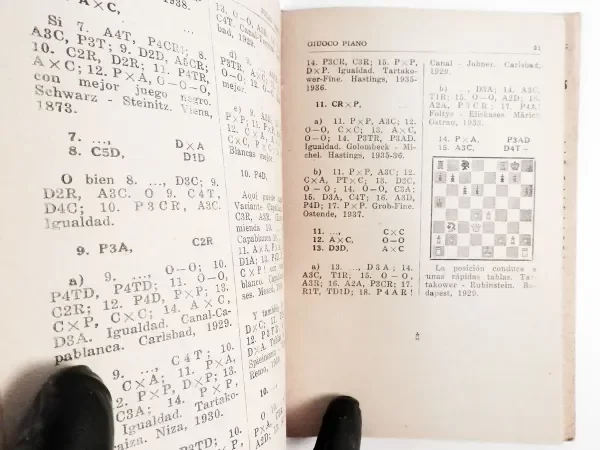 1938.
A×C,
Si 7. A4T, P4CR; 8.
A3C, P3T; 9. D2D, A5CR;
10. C2R, D2R; 11. P4TR,
A×C; 12. P×A, O—O—O;
con mejor juego negro.
Schwarz - Steinitz. Viena,
1873.
7. ..., D×A
8. C5D, D1D
O bien 8. ..., D3C; 9.
D2R, A3C. O 9. C4T,
D4C; 10. P3CR, A3C.
Igualdad.
9. P3A, C2R
a) 9. ..., O—O; 10.
P4TD, P4TD; 11. O—O,
C2R; 12. P4D, P×P; 13.
C×P, C×C; 14. A×C,
D3A. Igualdad. Canal-Ca-
pablanca. Carlsbad, 1929.
9. ..., C4T; 10.
C×A; 11. P×A,
2. P×P, D×P; 13.
C3A; 14. P×P,
Igualdad. Tartako-
Niza, 1930.
P3TD; 10.
13. O—O,
C4T.
1929.
d)
P3TR,
O—O;
mejor.
e)
P×P, 11.
12. C×C
C×C
Blancas mejor.
10. P4D,
Aquí
Variante
C3R,
mienda
Capablanca
11. A×A
D1A;
C×P!
blanco.
ses.
Y
D×C;
12. P3T
D×A.
1929.
10. ...,
O
P×A,
A2D;
GIUOCO PIANO
14. P3CR, C3R; 15. P×P,
D×P. Igualdad. Tartako-
wer-Fine. Hastings, 1935-
1936.
11. CR×P, ...
a) 11. P×P, A3C; 12.
O—O, C×C; 13. A×C,
O—O; 14. P3TR, P3AD.
Igualdad. Golombeck - Mi-
chel. Hastings, 1935-36.
b) 11. P×P, A3C; 12.
C×A, PT×C; 13. D2C,
O—O; 14. O—O, C3A;
15. D3A, C4T; 16. A3D,
P4D; 17. P×P. Grob-Fine.
Ostende, 1937.
11. ..., C×C
12. A×C, O—O
13. D3D, A×C
a) 13. ..., D3A; 14.
A3C, T1R; 15. O—O,
A3R; 16. A2A, P3CR; 17.
R1T, TD1D; 18. P4AR!
Canal - Johner. Carlsbad,
1929.
b) ..., D3A; 14. A3C,
T1R; 15. O—O, A2D; 16.
A2A, P3CR; 17. P4A!
Foltys - Eliskases. Märich
Ostrau, 1933.
14. P×A, P3AD
15. A3C, D4T =
La posición conduce a
unas rápidas tablas. Tar-
takower - Rubinstein. Bu-
dapest, 1929.